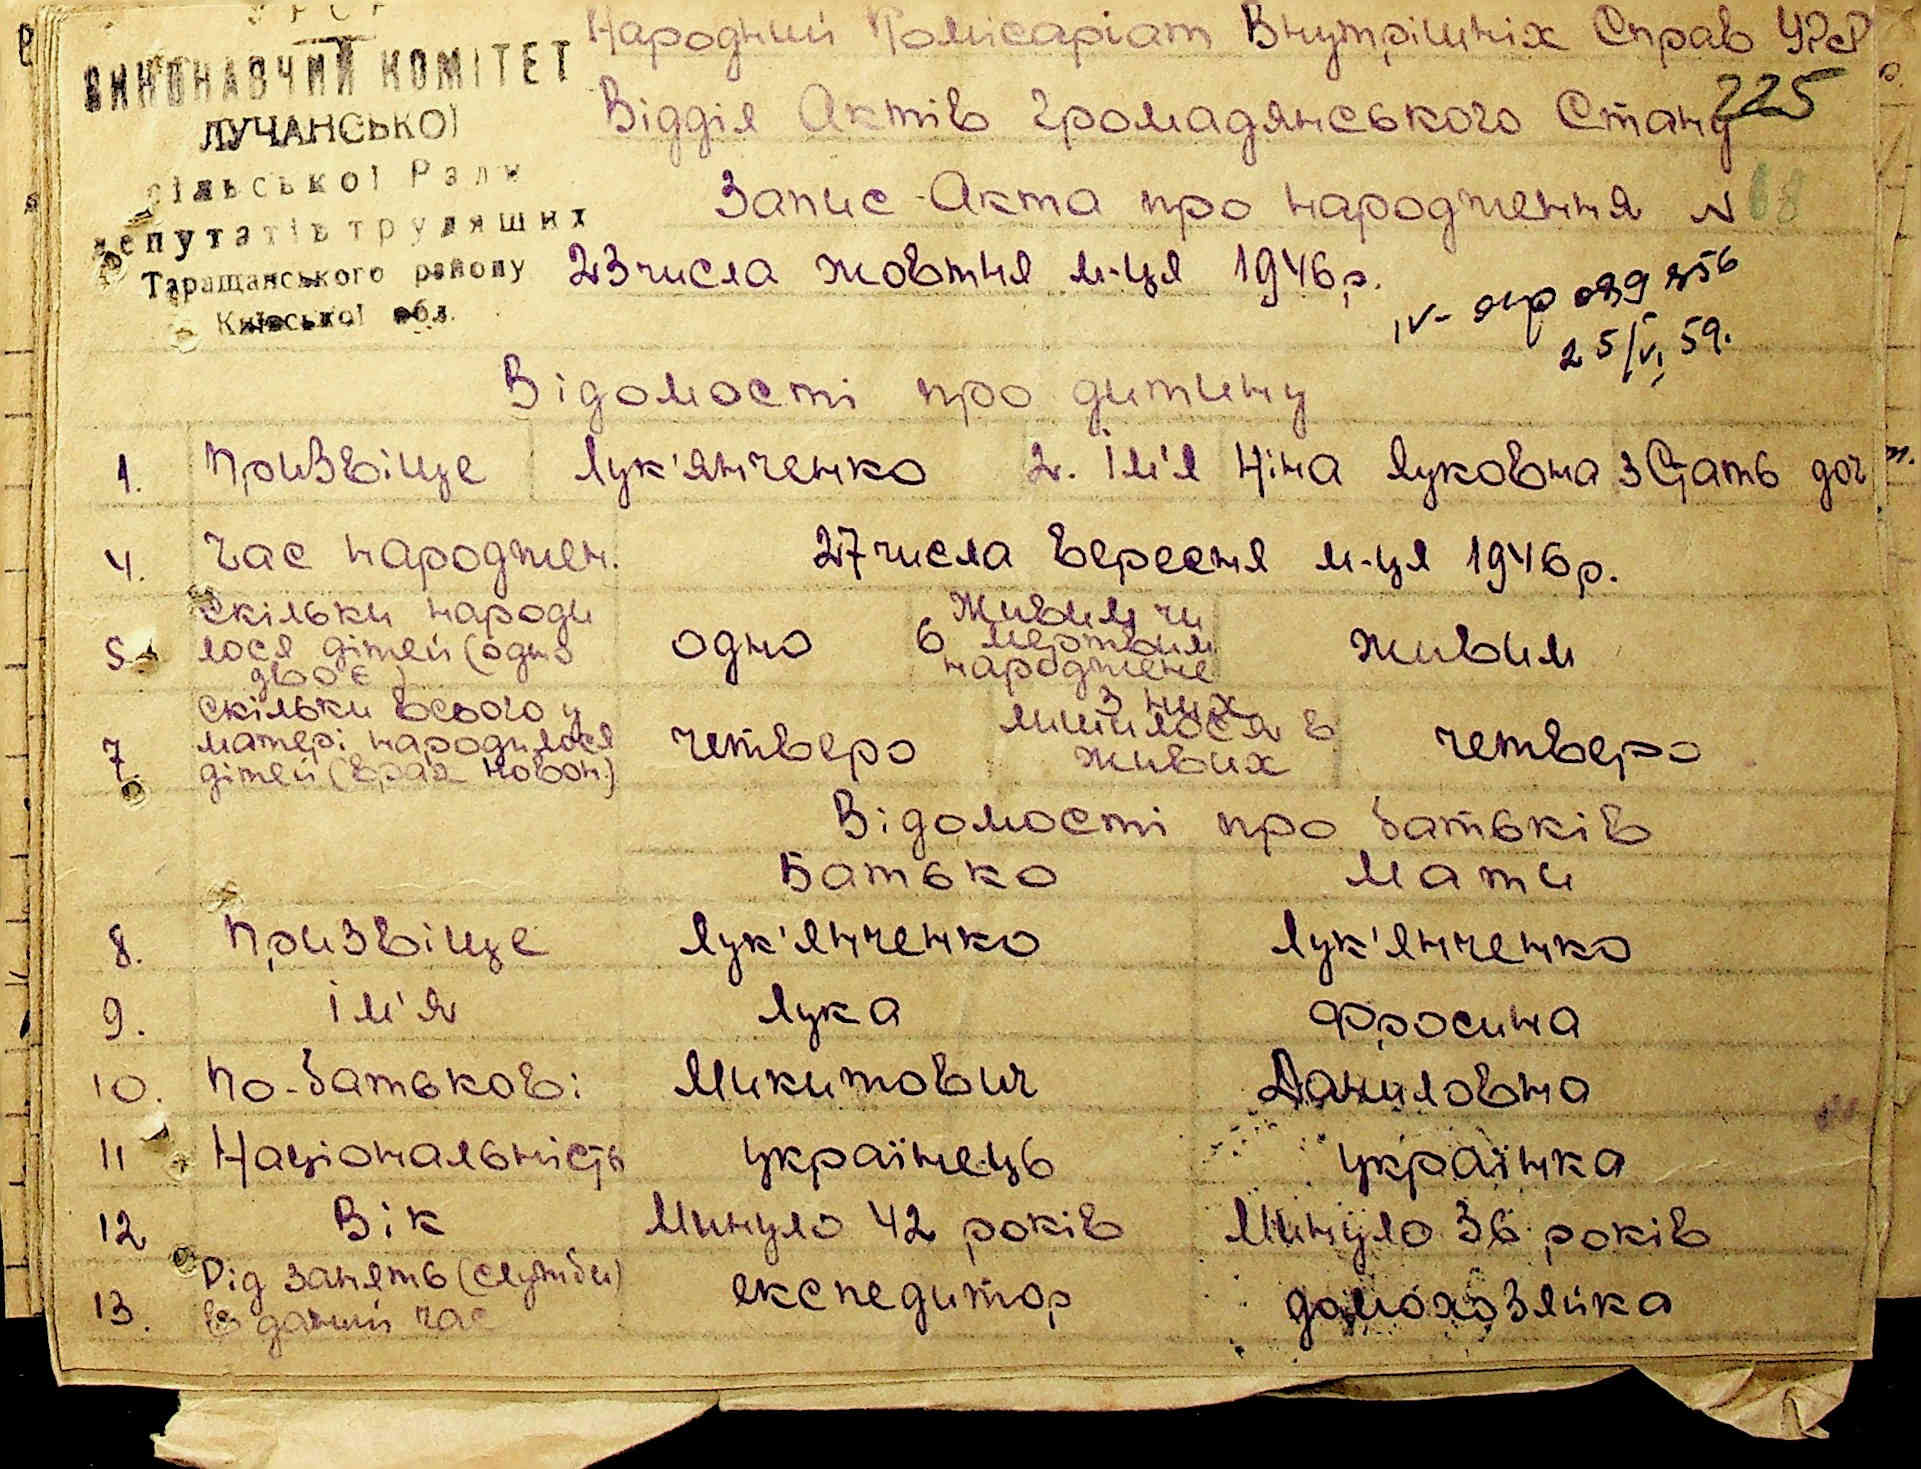 УРСР
ВИКОНАВЧИЙ КОМІТЕТ
ЛУЧАНСЬКОЇ
сільської Ради
депутатів трудящих
Таращанського району
Київської обл.
Народний Комісаріат Внутрішніх Справ УРСР
225
Відділ Актів Громадянського Стану
Запис Акта про народження N 68
23 числа жовтня м-ця 1946 р.
25/VI 59.
Відомості про дитину
1. Призвіще Лук'янченко 2. Ім'я Ніна Луковна 3 Стать доч
4. Час народжен. 27 числа вересня м-ця 1946 р.
5 Скільки народи лося дітей (одно двоє) одно 6 Живим чи мертвим народжене живим
7 Скільки всього у матері народилося дітей (врах новон.) четверо З них лишилося в живих четверо
Відомості про батьків
Батько Мати
8. Призвіще Лук'янченко Лук'янченко
9. Ім'я Лука Фросина
10. По-батькові Микитович Даниловна
11 Національність українець українка
12 Вік Минуло 42 років Минуло 36 років
13. Рід занять (служби) в даний час експедитор домохозяйка